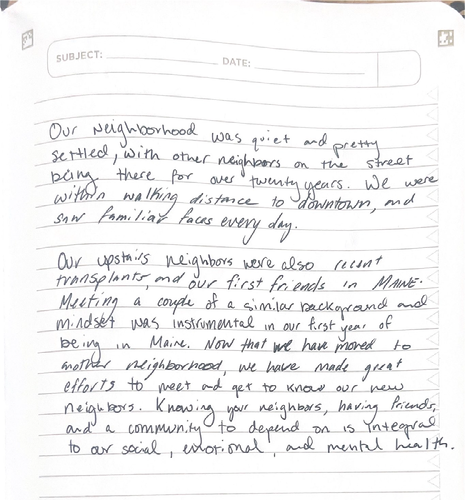 SUBJECT: DATE:
Our Neighborhood was quiet and pretty
settled, with other neighbors on the street
being there for over twenty years. We were
within walking distance to downtown, and
saw familiar faces every day.
Our upstairs neighbors were also recent
transplants, and our first friends in MAINE.
Meeting a couple of a similar background and
mindset was instrumental in our first year of
being in Maine. Now that we have moved to
another neighborhood, we have made great
efforts to meet and get to know our new
neighbors. Knowing your neighbors, having friends,
and a community to depend on is integral
to our social, emotional, and mental health.